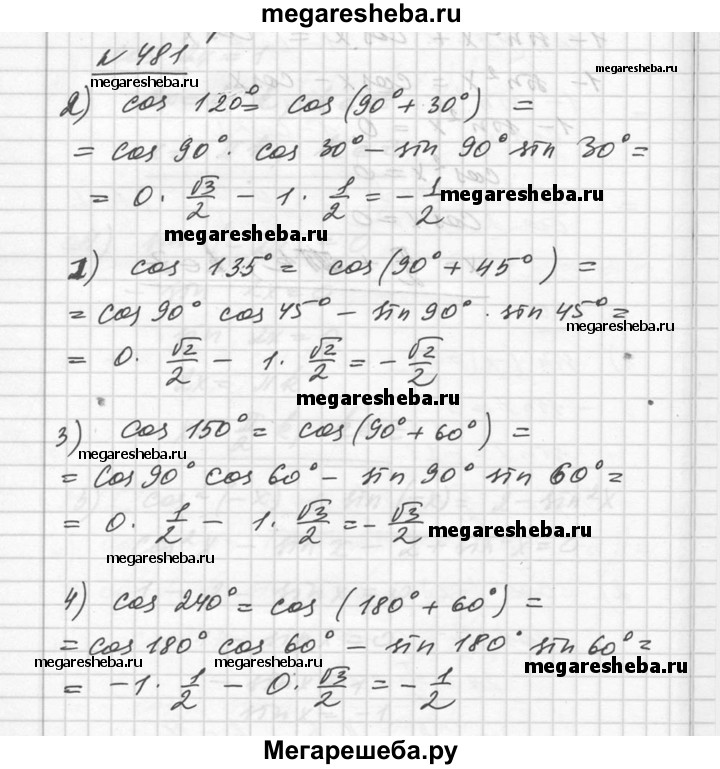 megaresheba.ru
№ 481
megaresheba.ru megaresheba.ru
2) cos 120° = cos(90° + 30°) =
= cos 90° · cos 30° − sin 90° sin 30° =
= 0 · √3/2 − 1 · 1/2 = − 1/2 megaresheba.ru
megaresheba.ru
1) cos 135° = cos(90° + 45°) =
= cos 90° cos 45° − sin 90° · sin 45° =
megaresheba.ru
= 0 · √2/2 − 1 · √2/2 = − √2/2
megaresheba.ru
3) cos 150° = cos(90° + 60°) =
megaresheba.ru
= cos 90° cos 60° − sin 90° sin 60° =
= 0 · 1/2 − 1 · √3/2 = − √3/2 megaresheba.ru
megaresheba.ru
4) cos 240° = cos (180° + 60°) =
= cos 180° cos 60° − sin 180° sin 60° =
megaresheba.ru megaresheba.ru megaresheba.ru
= −1 · 1/2 − 0 · √3/2 = − 1/2
Мегарешеба.ру